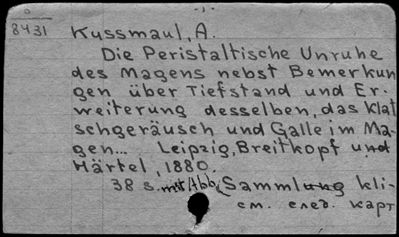 8431
Kussmaul, A.
Die Peristaltische Unruhe
des Magens nebst Bemerkun
gen über Tiefstand und Er-
weiterung desselben, das Klat
schgeräusch und Galle im Ma-
gen... Leipzig, Breitkopf und
Härtel, 1880.
38 s. mit Abb. (Sammlung kli-
см. след. карт